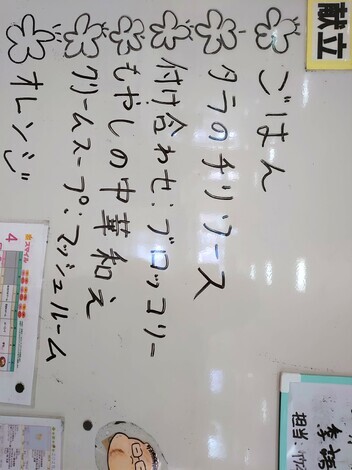 献立
ごはん
タラのチリソース
付け合わせ:ブロッコリー
もやしの中華和え
クリームスープ:マッシュルーム
オレンジ
4
担当: